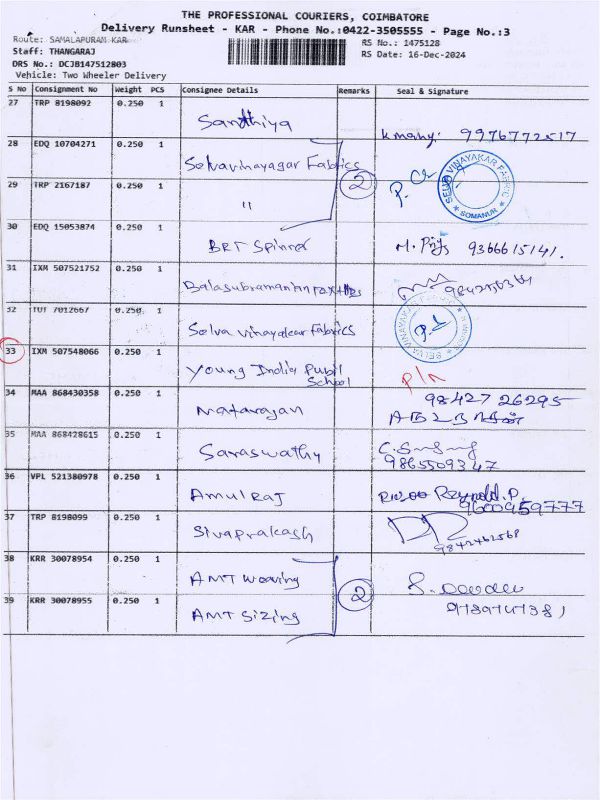 THE PROFESSIONAL COURIERS, COIMBATORE
Delivery Runsheet - KAR - Phone No.:0422-3505555 - Page No.:3
Route: SAMALAPURAM KAR
RS No.: 1475128
Staff: THANGARAJ
RS Date: 16-Dec-2024
DRS No.: DCJB147512803
Vehicle: Two Wheeler Delivery
S No Consignment No Weight PCS Consignee Details Remarks Seal & Signature
27 TRP 8198092 0.250 1
Sandhiya
9976772517
28 EDQ 10704271 0.250 1
Selvavinayagar Fabrics
2
SELVA VINAYAKAR FABRIC
SOMANUR
29 TRP 2167187 0.250 1
"
30 EDQ 15053874 0.250 1
BRT Spinner
9366615141.
31 IXM 507521752 0.250 1
Balasubramanian
32 TUT 7012667 0.250 1
Selva vinayakar fabrics
SELVA VINAYAKAR
33 IXM 507548066 0.250 1
Young India Publi
School
P/N
34 MAA 868430358 0.250 1
Natarajan
98427 26295
35 MAA 868428615 0.250 1
Saraswathy
9865509347
36 VPL 521380978 0.250 1
Amulraj
Reynold.P.
9600459777
37 TRP 8198099 0.250 1
Sivaprakash
9842462568
38 KRR 30078954 0.250 1
AMT Weaving
2
39 KRR 30078955 0.250 1
AMT Sizing